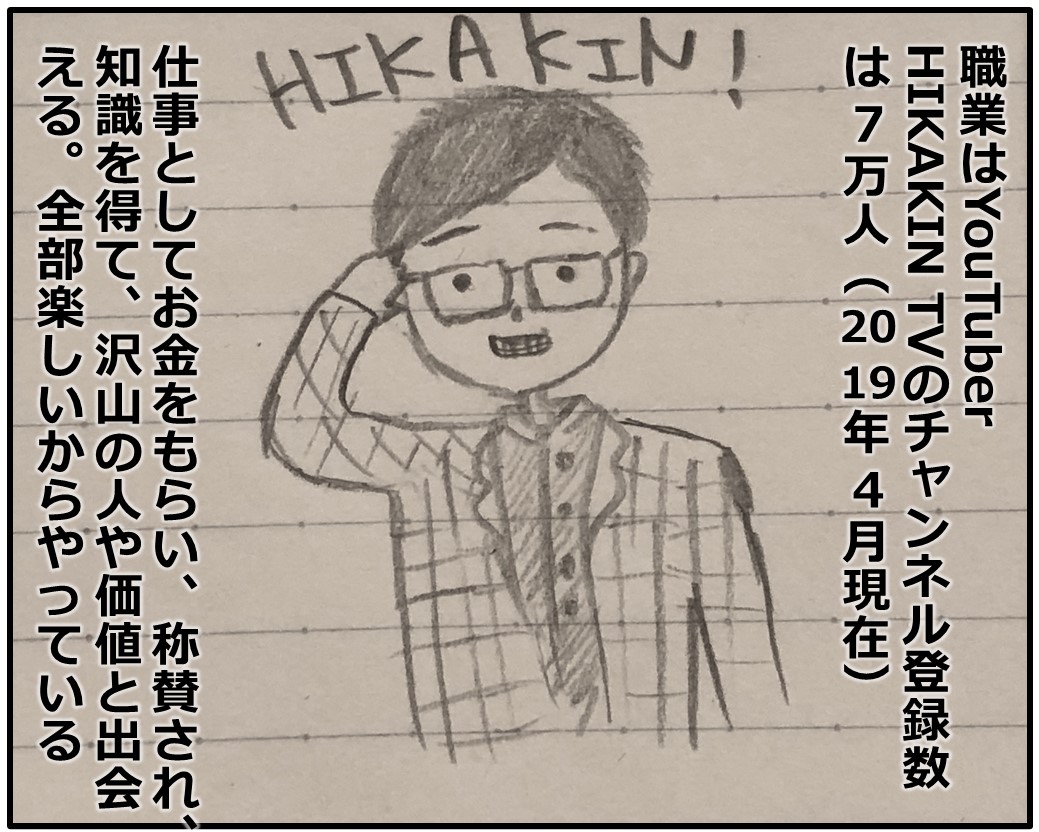 HIKAKIN!
職業はYouTuber
HIKAKIN TVのチャンネル登録数
は7万人(2019年4月現在)
仕事としてお金をもらい、称賛され、
知識を得て、沢山の人や価値と出会
える。全部楽しいからやっている